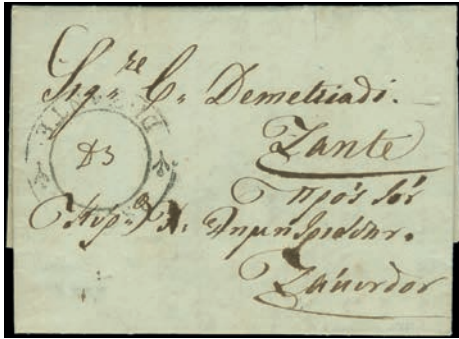 Sig.re C. Demetriadi.
DI ZANTE
Zante
πρὸς τὸν
Κύρ. Κ. Δημητριάδην.
Ζάκυνθον